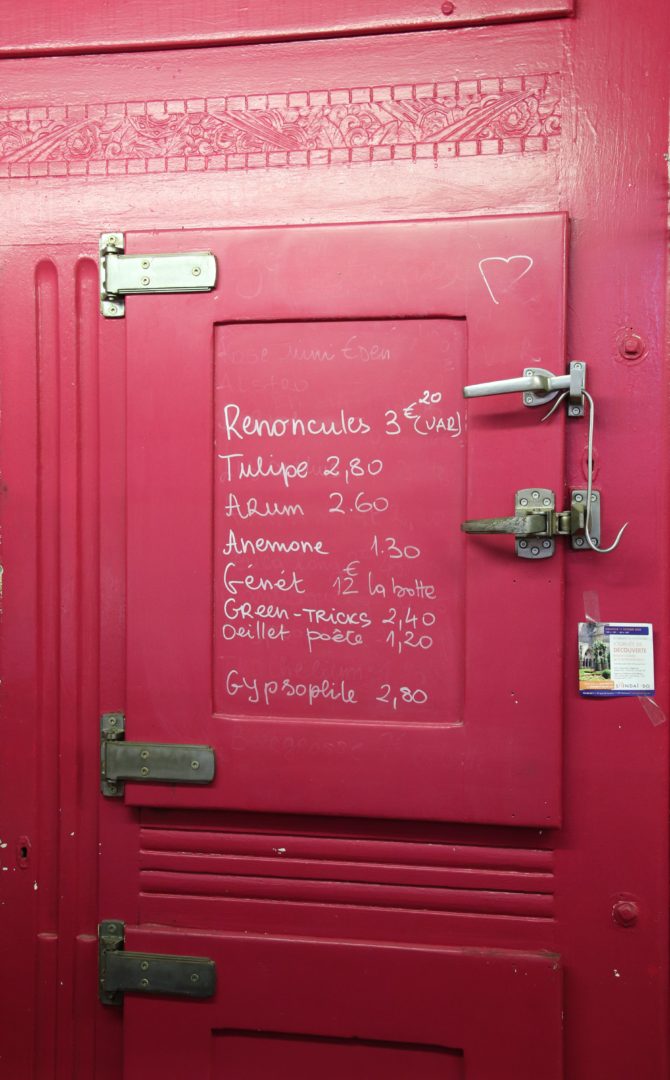 Renoncules 3€20 (VAR)
Tulipe 2,80
ARum 2.60
Anemone 1.30
Génét 12€ la botte
GREEN-TRICKS 2,40
Oeillet poète 1,20
Gypsophile 2,80
DÉCOUVERTE